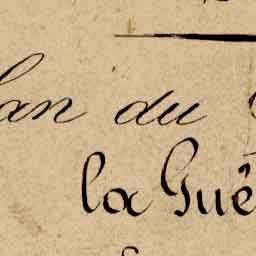 lan du
la Guê